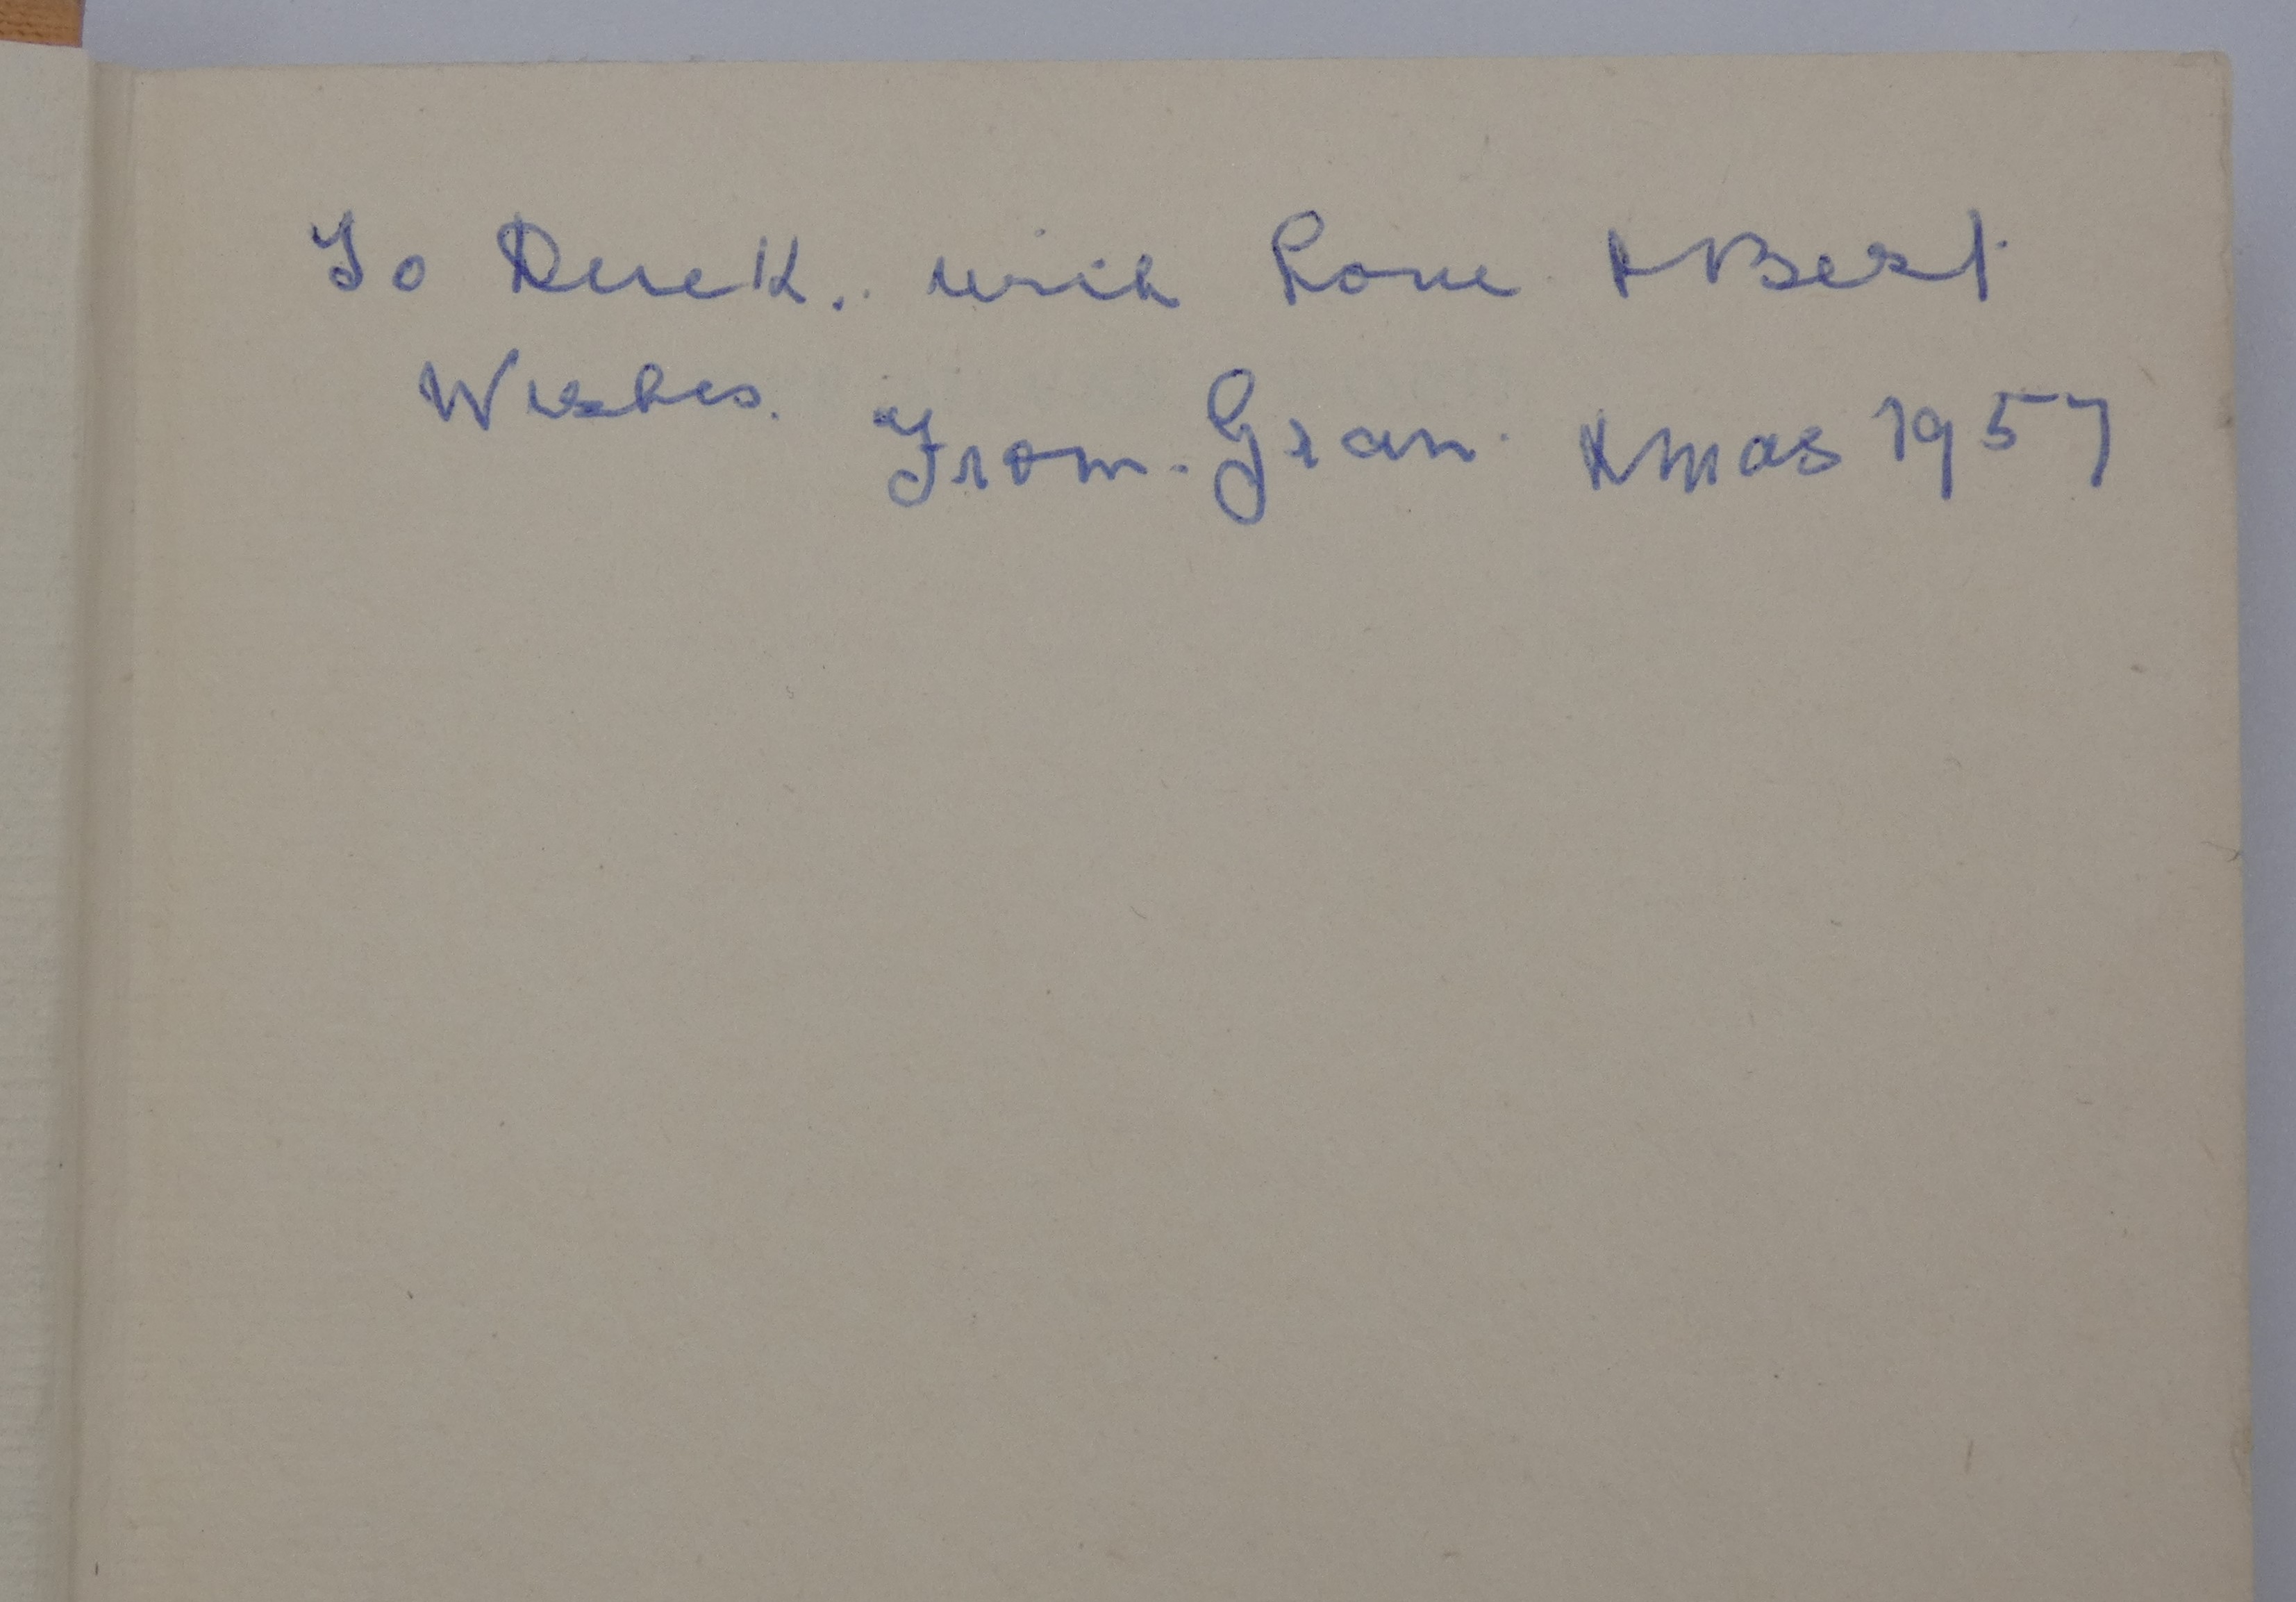 To Derek.. with Love & Best
Wishes. From. Gran. Xmas 1957